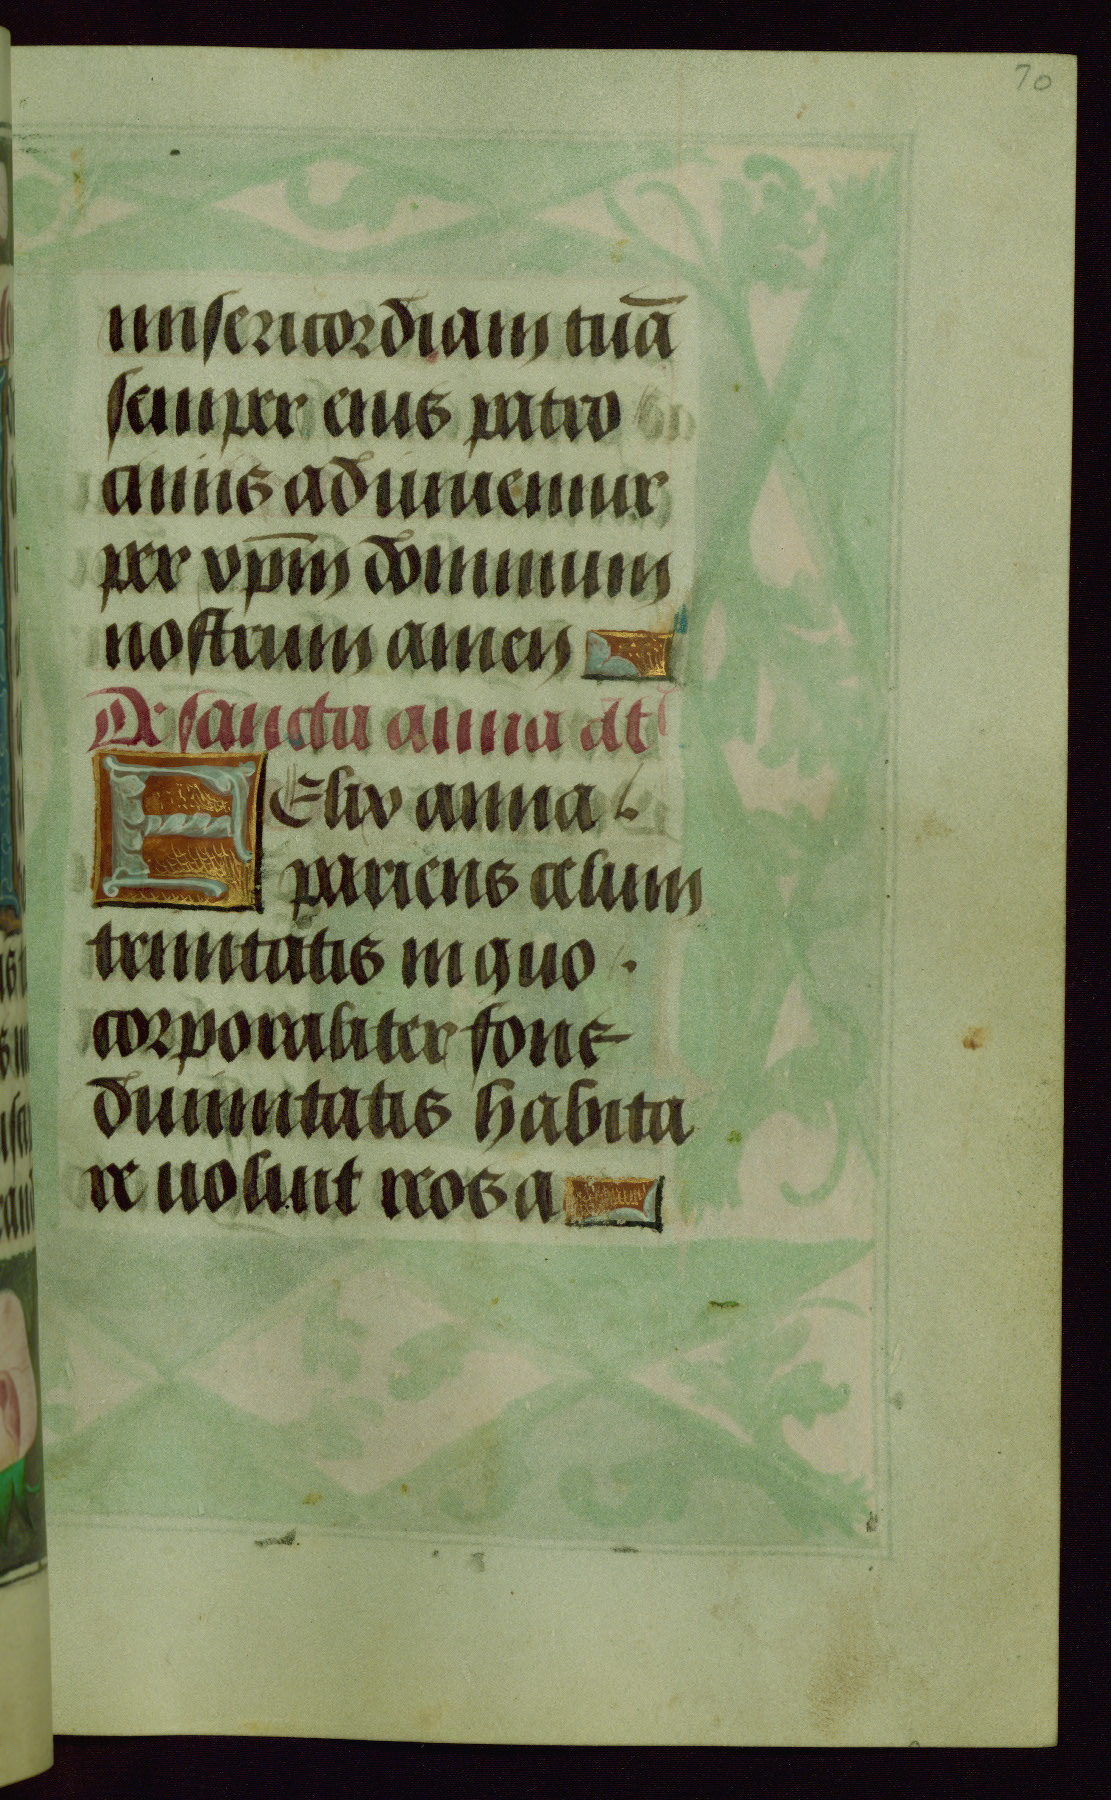 70
misericordiam tuā
semper eius patro
ciniis adiuuemur
per xp̄m dominum
nostrum amen
De sancta anna añt
F Elix anna
pariens celum
trinitatis in quo
corporaliter fons
diuinitatis habita
re uoluit rosa